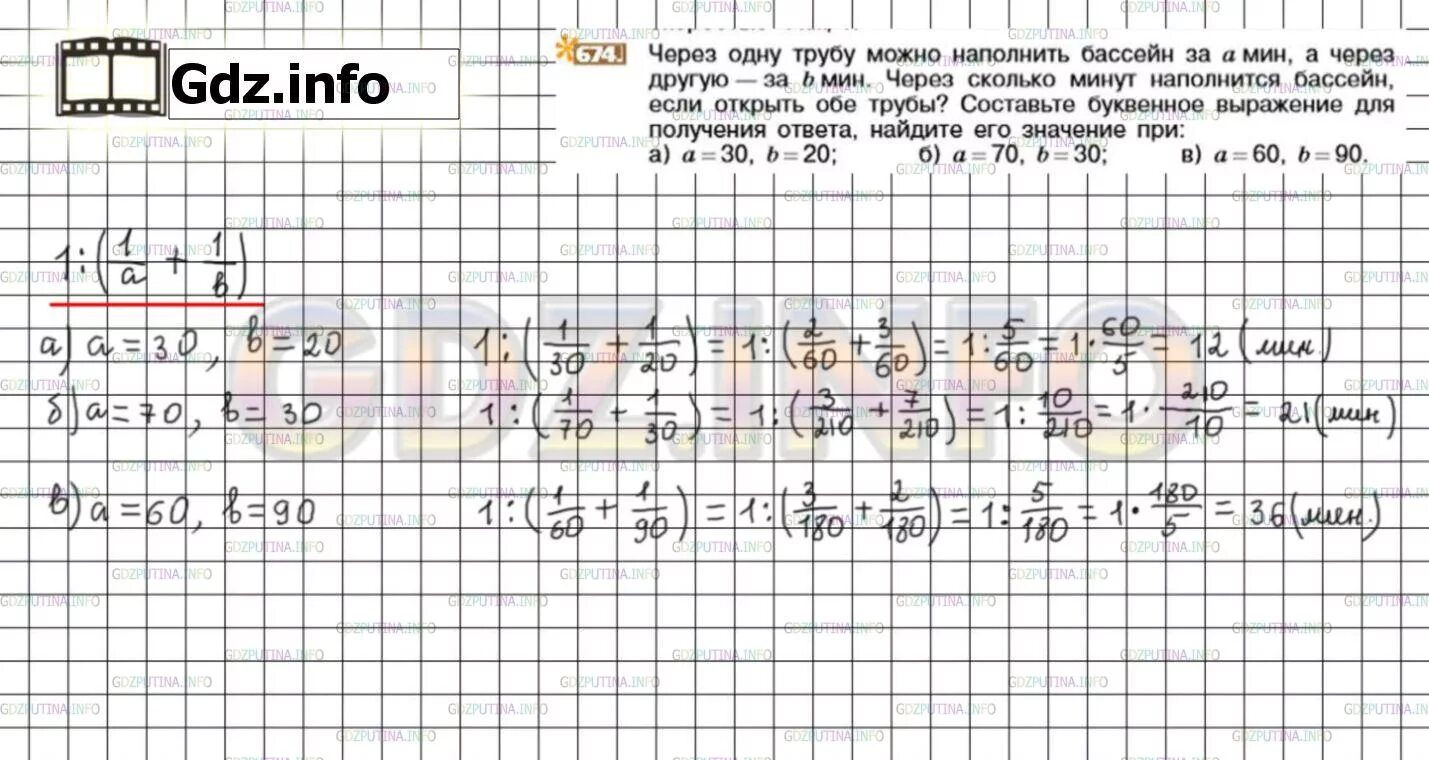 Gdz.info
674. Через одну трубу можно наполнить бассейн за a мин, а через
другую — за b мин. Через сколько минут наполнится бассейн,
если открыть обе трубы? Составьте буквенное выражение для
получения ответа, найдите его значение при:
а) a = 30, b = 20; б) a = 70, b = 30; в) a = 60, b = 90.
1 : (1/a + 1/b)
а) a = 30, b = 20 1 : (1/30 + 1/20) = 1 : (2/60 + 3/60) = 1 : 5/60 = 1 · 60/5 = 12 (мин.)
б) a = 70, b = 30 1 : (1/70 + 1/30) = 1 : (3/210 + 7/210) = 1 : 10/210 = 1 · 210/10 = 21 (мин)
в) a = 60, b = 90 1 : (1/60 + 1/90) = 1 : (3/180 + 2/180) = 1 : 5/180 = 1 · 180/5 = 36 (мин.)
GDZ.INFO
GDZPUTINA.INFO